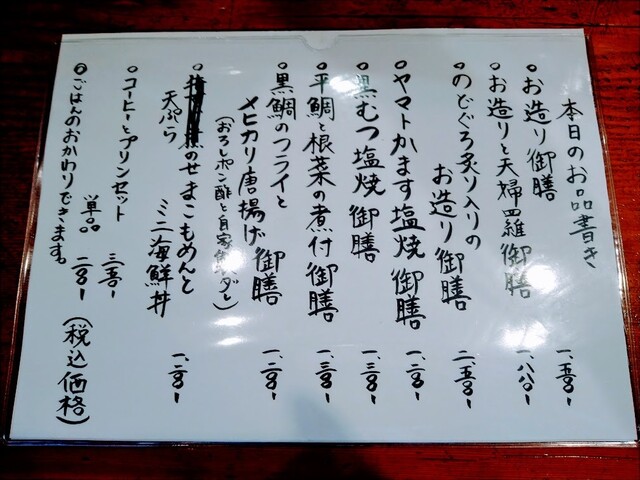 本日のお品書き
○お造り御膳 一、五〇〇-
○お造りと天婦羅御膳 一、八〇〇-
○のどぐろ炙り入りの
お造り御膳 二、五〇〇-
○ヤマトかます塩焼御膳 一、二〇〇-
○黒むつ塩焼御膳 一、三〇〇-
○平鯛と根菜の煮付御膳 一、三〇〇-
○黒鯛のフライと
メヒカリ唐揚げ御膳 一、二〇〇-
(おろしポン酢と自家製
○ のせまこもめんと
天ぷら ミニ海鮮丼 一、二〇〇-
○コーヒーとプリンセット 三五〇-
単品 二〇〇-
ごはんのおかわりできます。
(税込価格)